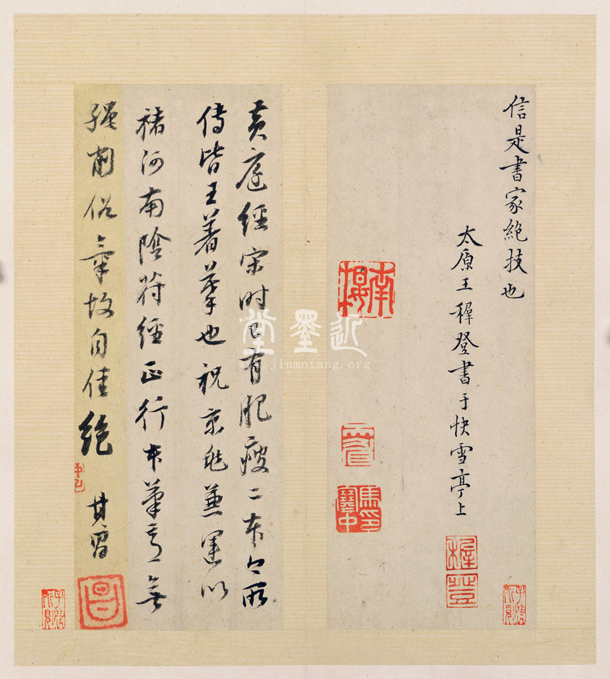 信是書家絶技也
太原王穉登書于快雪亭上
穉登
黄庭經宋時已有肥瘦二本今所
傳皆王著摹也祝京兆兼運以
褚河南陰符經正行本筆意無
削俗氣故自佳絶
其昌
昌
近墨堂
www.jinmotang.org